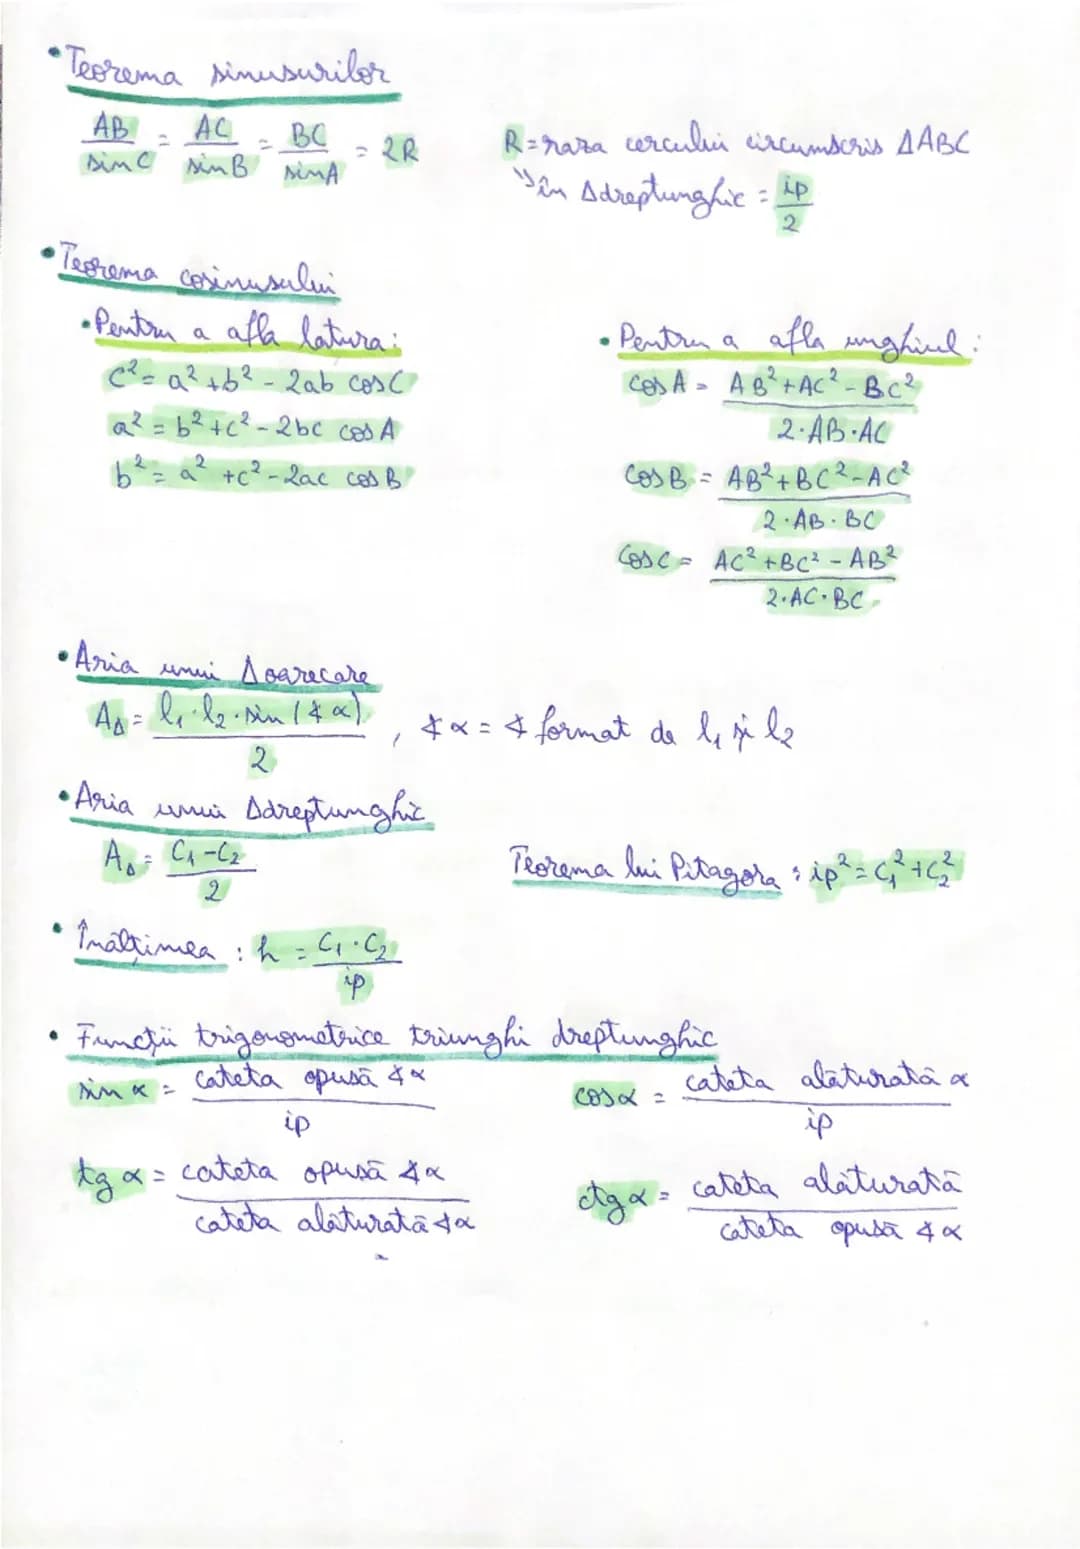 • Teorema sinusurilor
AB/sin C = AC/sin B = BC/sin A = 2R
R = raza cercului circumscris ΔABC
în Δdreptunghic = ip/2
• Teorema cosinusului
• Pentru a afla latura:
c² = a² + b² - 2ab cos C
a² = b² + c² - 2bc cos A
b² = a² + c² - 2ac cos B
• Pentru a afla unghiul:
cos A = AB² + AC² - BC² / 2·AB·AC
cos B = AB² + BC² - AC² / 2·AB·BC
cos C = AC² + BC² - AB² / 2·AC·BC
• Aria unui Δoarecare
A_Δ = l₁·l₂·sin(∢α) / 2 , ∢α = ∢ format de l₁ și l₂
• Aria unui Δdreptunghic
A_Δ = C₁-C₂ / 2
Teorema lui Pitagora : ip² = C₁² + C₂²
• Înălțimea : h = C₁·C₂ / ip
• Funcții trigonometrice triunghi dreptunghic
sin α = cateta opusă ∢α / ip
cos α = cateta alăturată α / ip
tg α = cateta opusă ∢α / cateta alăturată ∢α
ctg α = cateta alăturată / cateta opusă ∢α